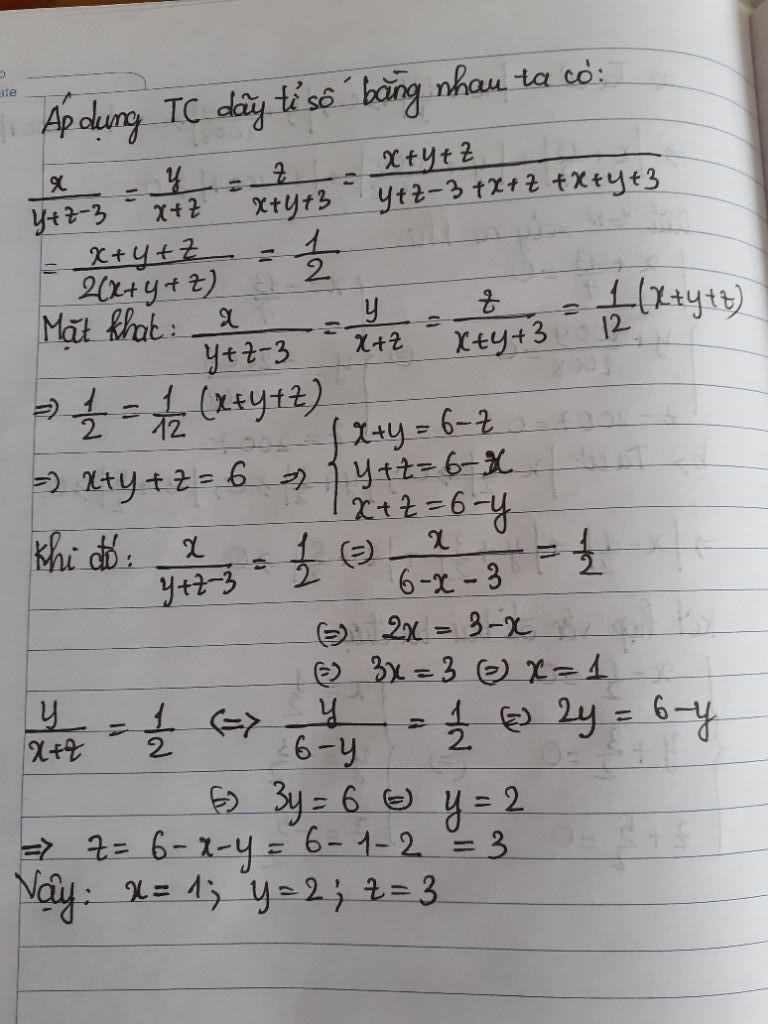 ate
Áp dụng TC dãy tỉ số bằng nhau ta có:
x/(y+z-3) = y/(x+z) = z/(x+y+3) = (x+y+z)/(y+z-3+x+z+x+y+3)
= (x+y+z)/(2(x+y+z)) = 1/2
Mặt khat: x/(y+z-3) = y/(x+z) = z/(x+y+3) = 1/12 (x+y+z)
=> 1/2 = 1/12 (x+y+z)
=> x+y+z = 6 => { x+y = 6-z
y+z = 6-x
x+z = 6-y
Khi đó: x/(y+z-3) = 1/2 (=) x/(6-x-3) = 1/2
(=) 2x = 3-x
(=) 3x = 3 (=) x = 1
y/(x+z) = 1/2 <=> y/(6-y) = 1/2 (=) 2y = 6-y
(=) 3y = 6 (=) y = 2
=> z = 6-x-y = 6-1-2 = 3
Vậy: x = 1; y = 2; z = 3